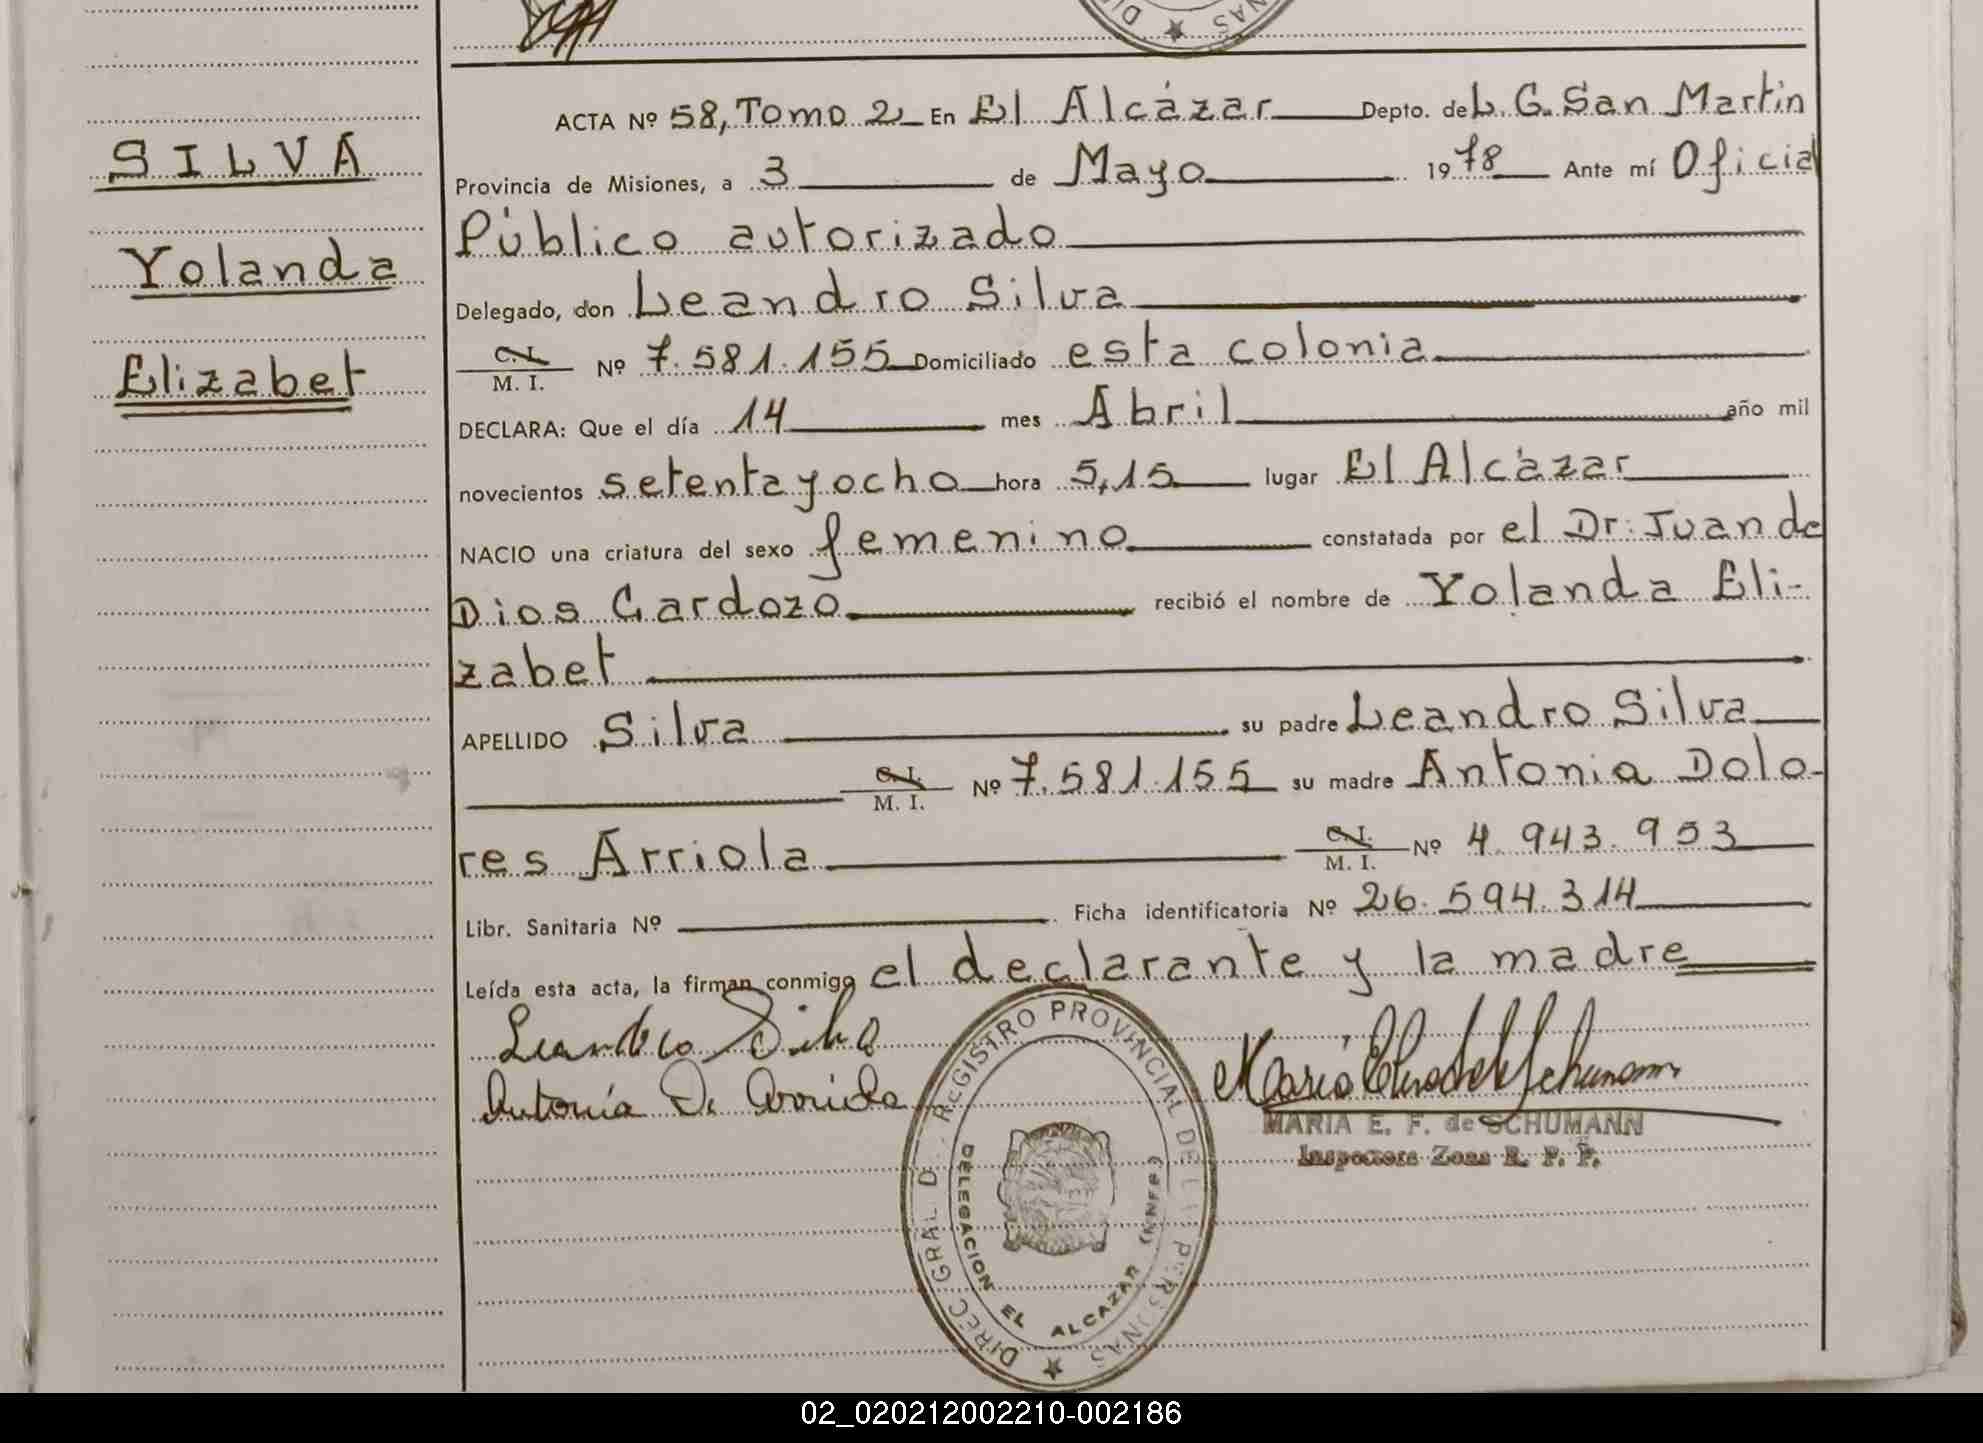 SILVA
Yolanda
Elizabet
ACTA Nº 58, Tomo 2 En El Alcázar Depto. de L. G. San Martín
Provincia de Misiones, a 3 de Mayo 1978 Ante mí Oficial
Público autorizado
Delegado, don Leandro Silva
C. I.
M. I. Nº 7.581.155 Domiciliado esta colonia
DECLARA: Que el día 14 mes Abril año mil
novecientos setenta y ocho hora 5,15 lugar El Alcázar
NACIO una criatura del sexo femenino constatada por el Dr. Juan de
Dios Cardozo recibió el nombre de Yolanda Eli-
zabet
APELLIDO Silva su padre Leandro Silva
C. I.
M. I. Nº 7.581.155 su madre Antonia Dolo-
res Arriola C. I.
M. I. Nº 4.943.953
Libr. Sanitaria Nº Ficha identificatoria Nº 26.594.314
Leída esta acta, la firman conmigo el declarante y la madre
Leandro Silva
Antonia D. Arriola
MARIA E. F. de SCHUMANN
Inspectora Zona R. P. P.
DIREC. GRAL. D. REGISTRO PROVINCIAL DE L. PERSONAS
DELEGACION EL ALCAZAR
02_020212002210-002186